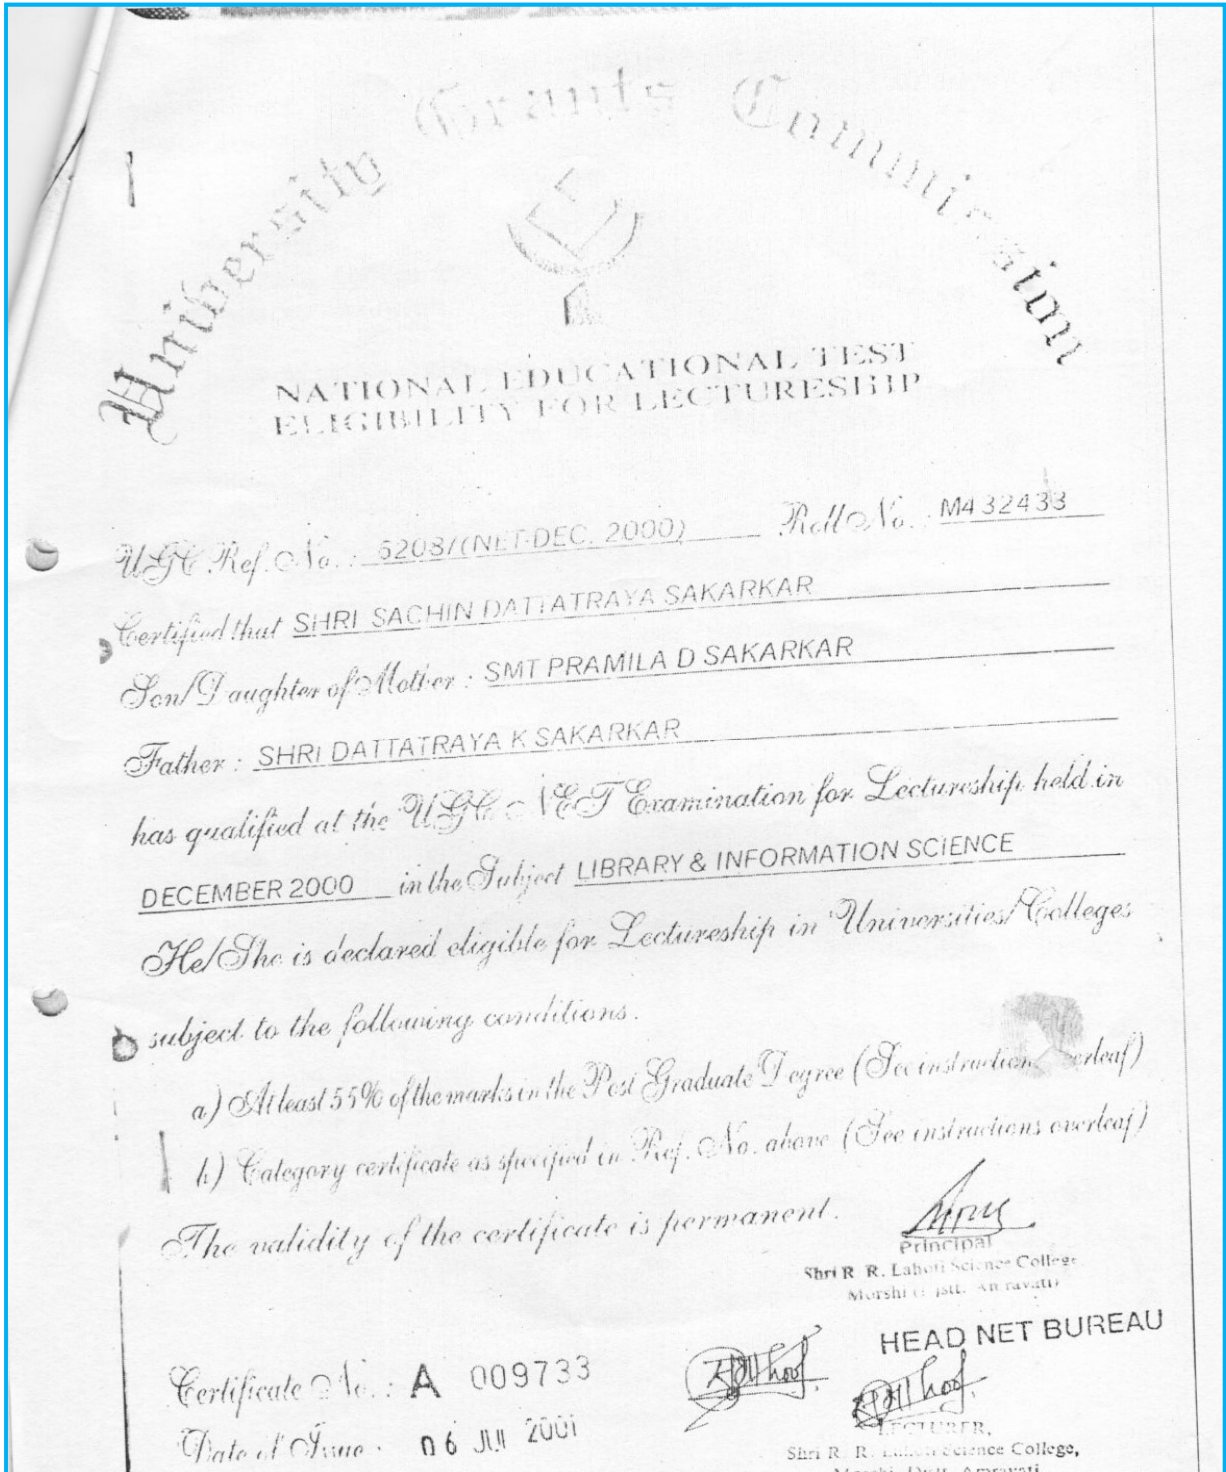 University Grants Commission
NATIONAL EDUCATIONAL TEST
ELIGIBILITY FOR LECTURESHIP
UGC Ref. No. : 5208/(NET-DEC. 2000) Roll No. : M432433
Certified that SHRI SACHIN DATTATRAYA SAKARKAR
Son/Daughter of Mother : SMT PRAMILA D SAKARKAR
Father : SHRI DATTATRAYA K SAKARKAR
has qualified at the UGC NET Examination for Lectureship held in
DECEMBER 2000 in the Subject LIBRARY & INFORMATION SCIENCE
He/She is declared eligible for Lectureship in Universities/Colleges
subject to the following conditions.
a) At least 55% of the marks in the Post Graduate Degree (See instruction overleaf)
b) Category certificate as specified in Ref. No. above (See instructions overleaf)
The validity of the certificate is permanent.
Principal
Shri R. R. Lahoti Science College
Morshi (Distt. Amravati)
HEAD NET BUREAU
Certificate No. : A 009733
Date of Issue : 06 JUL 2001
LECTURER,
Shri R. R. Lahoti Science College,
Morshi, Distt. Amravati